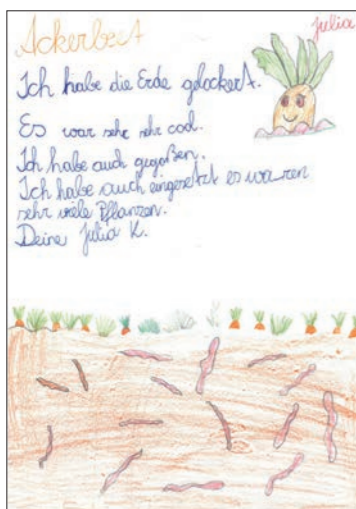 Julia
Ackerbeet
Ich habe die Erde gelockert.
Es war sehr sehr cool.
Ich habe auch gegoßen.
Ich habe auch eingesetzt es waren
sehr viele Pflanzen.
Deine Julia K.